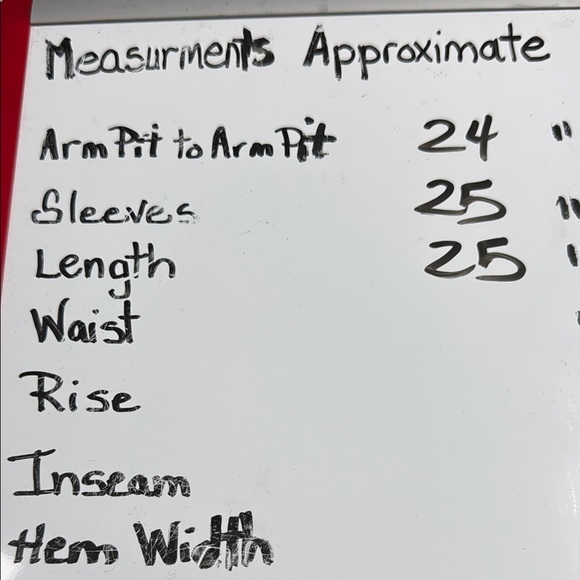 Measurments Approximate
Arm Pit to Arm Pit 24 "
Sleeves 25 "
Length 25 "
Waist "
Rise
Inseam
Hem Width